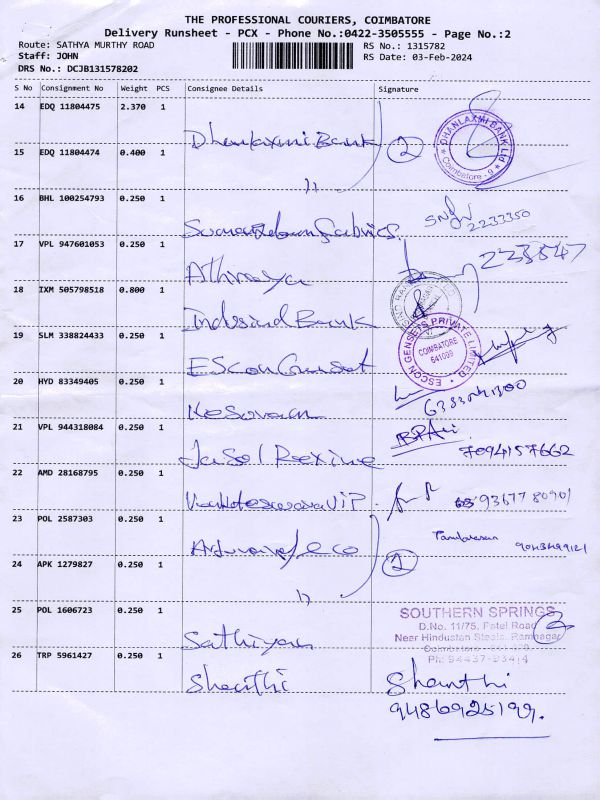 THE PROFESSIONAL COURIERS, COIMBATORE
Delivery Runsheet - PCX - Phone No.:0422-3505555 - Page No.:2
Route: SATHYA MURTHY ROAD
RS No.: 1315782
Staff: JOHN
RS Date: 03-Feb-2024
DRS No.: DCJB131578202
S No Consignment No Weight PCS Consignee Details Signature
14 EDQ 11804475 2.370 1
Dhanlaxmi Bank 2
DHANLAXMI BANK Ltd
Coimbatore - 9
15 EDQ 11804474 0.400 1
"
16 BHL 100254793 0.250 1
2233350
17 VPL 947601053 0.250 1
Athraya
18 IXM 505798518 0.800 1
Indusind Bank
19 SLM 338824433 0.250 1
EScon Genset
ESCON GENSETS PRIVATE LIMITED
COIMBATORE
641009
20 HYD 83349405 0.250 1
Kesavan
21 VPL 944318084 0.250 1
Rexine
7094157662
22 AMD 28168795 0.250 1
VIP
23 POL 2587303 0.250 1
& co
24 APK 1279827 0.250 1
"
25 POL 1606723 0.250 1
Sathiyan
SOUTHERN SPRINGS
D.No. 11/75, Patel Road
Near Hindustan Steels, Ramnagar
Ph: 94437-93414
26 TRP 5961427 0.250 1
Shanthi
Shanthi
9486925199.